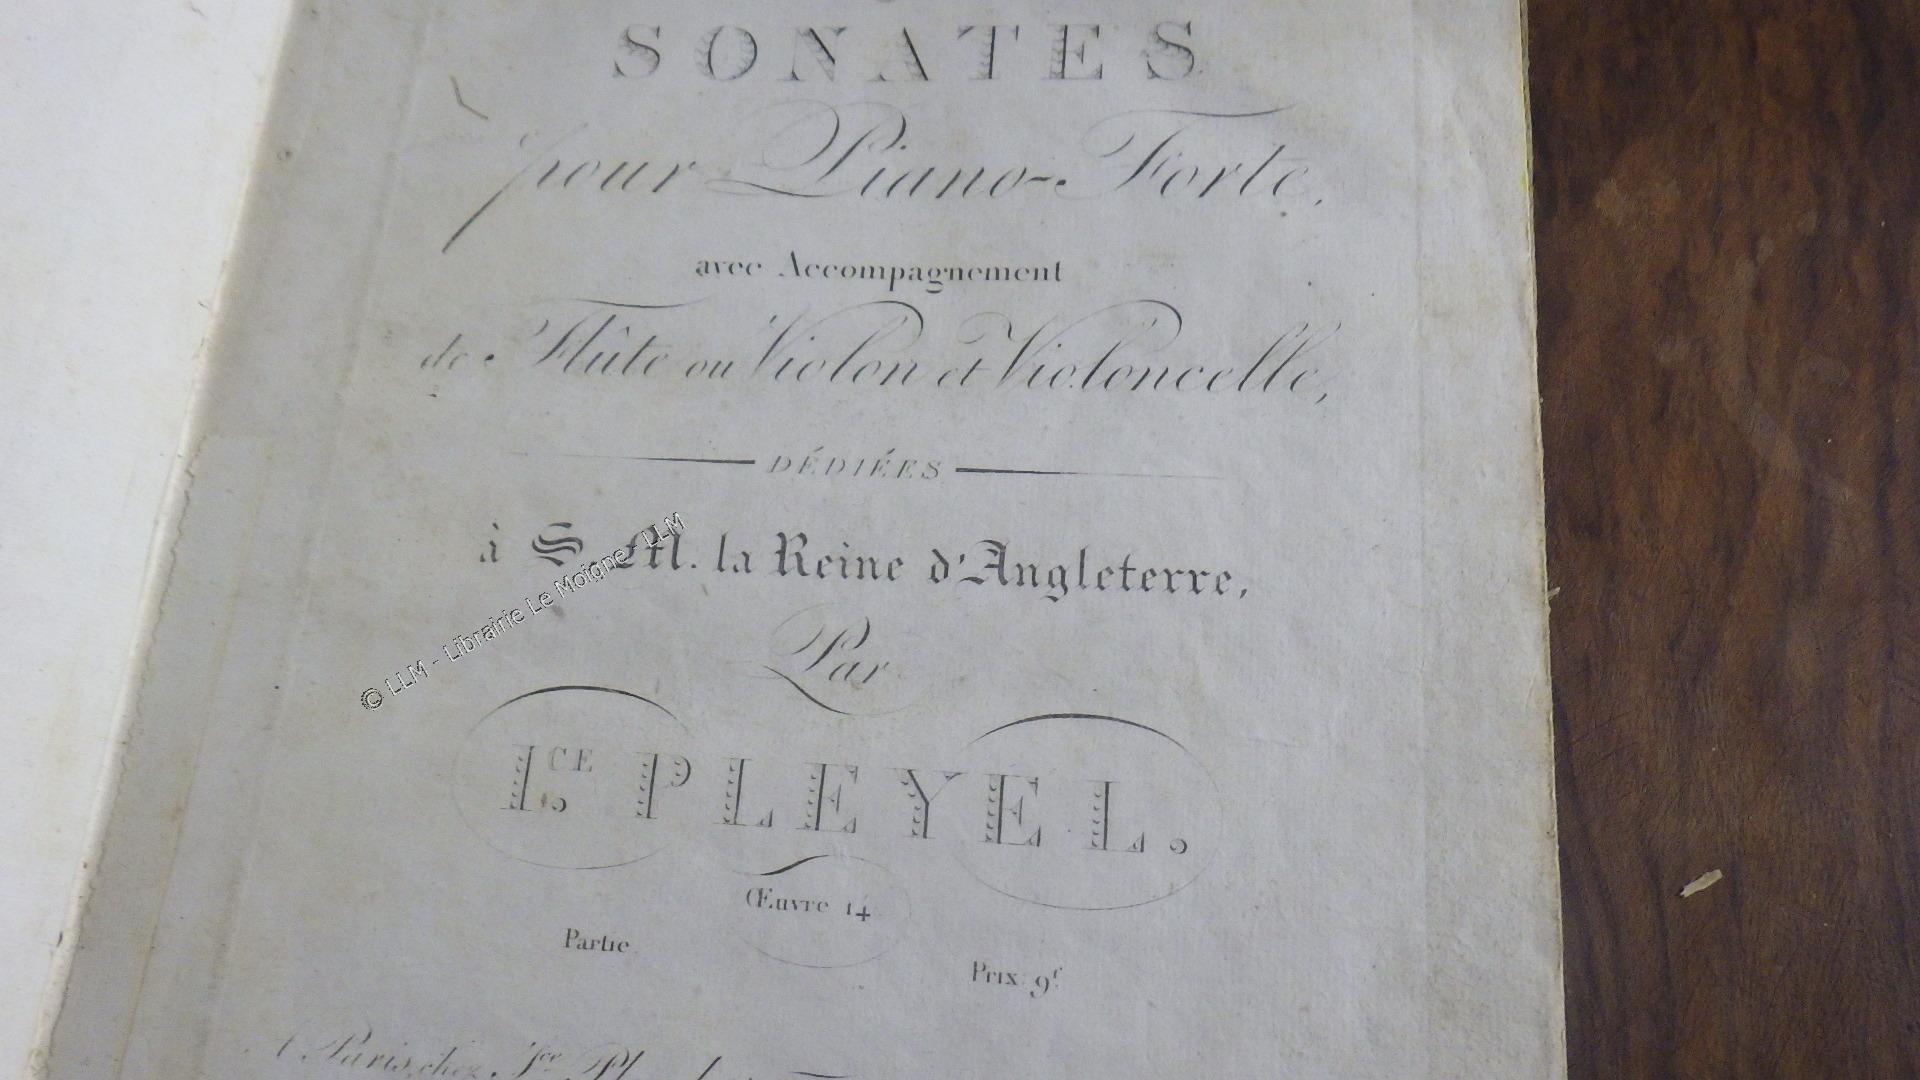 SONATES
pour Piano-Forte,
avec Accompagnement
de Flûte ou Violon et Violoncelle,
DÉDIÉES
à S. M. la Reine d'Angleterre,
Par
I.CE PLEYEL.
Œuvre 14
Partie
Prix 9f
A Paris, chez
© LLM - Librairie Le Moigne - LLM